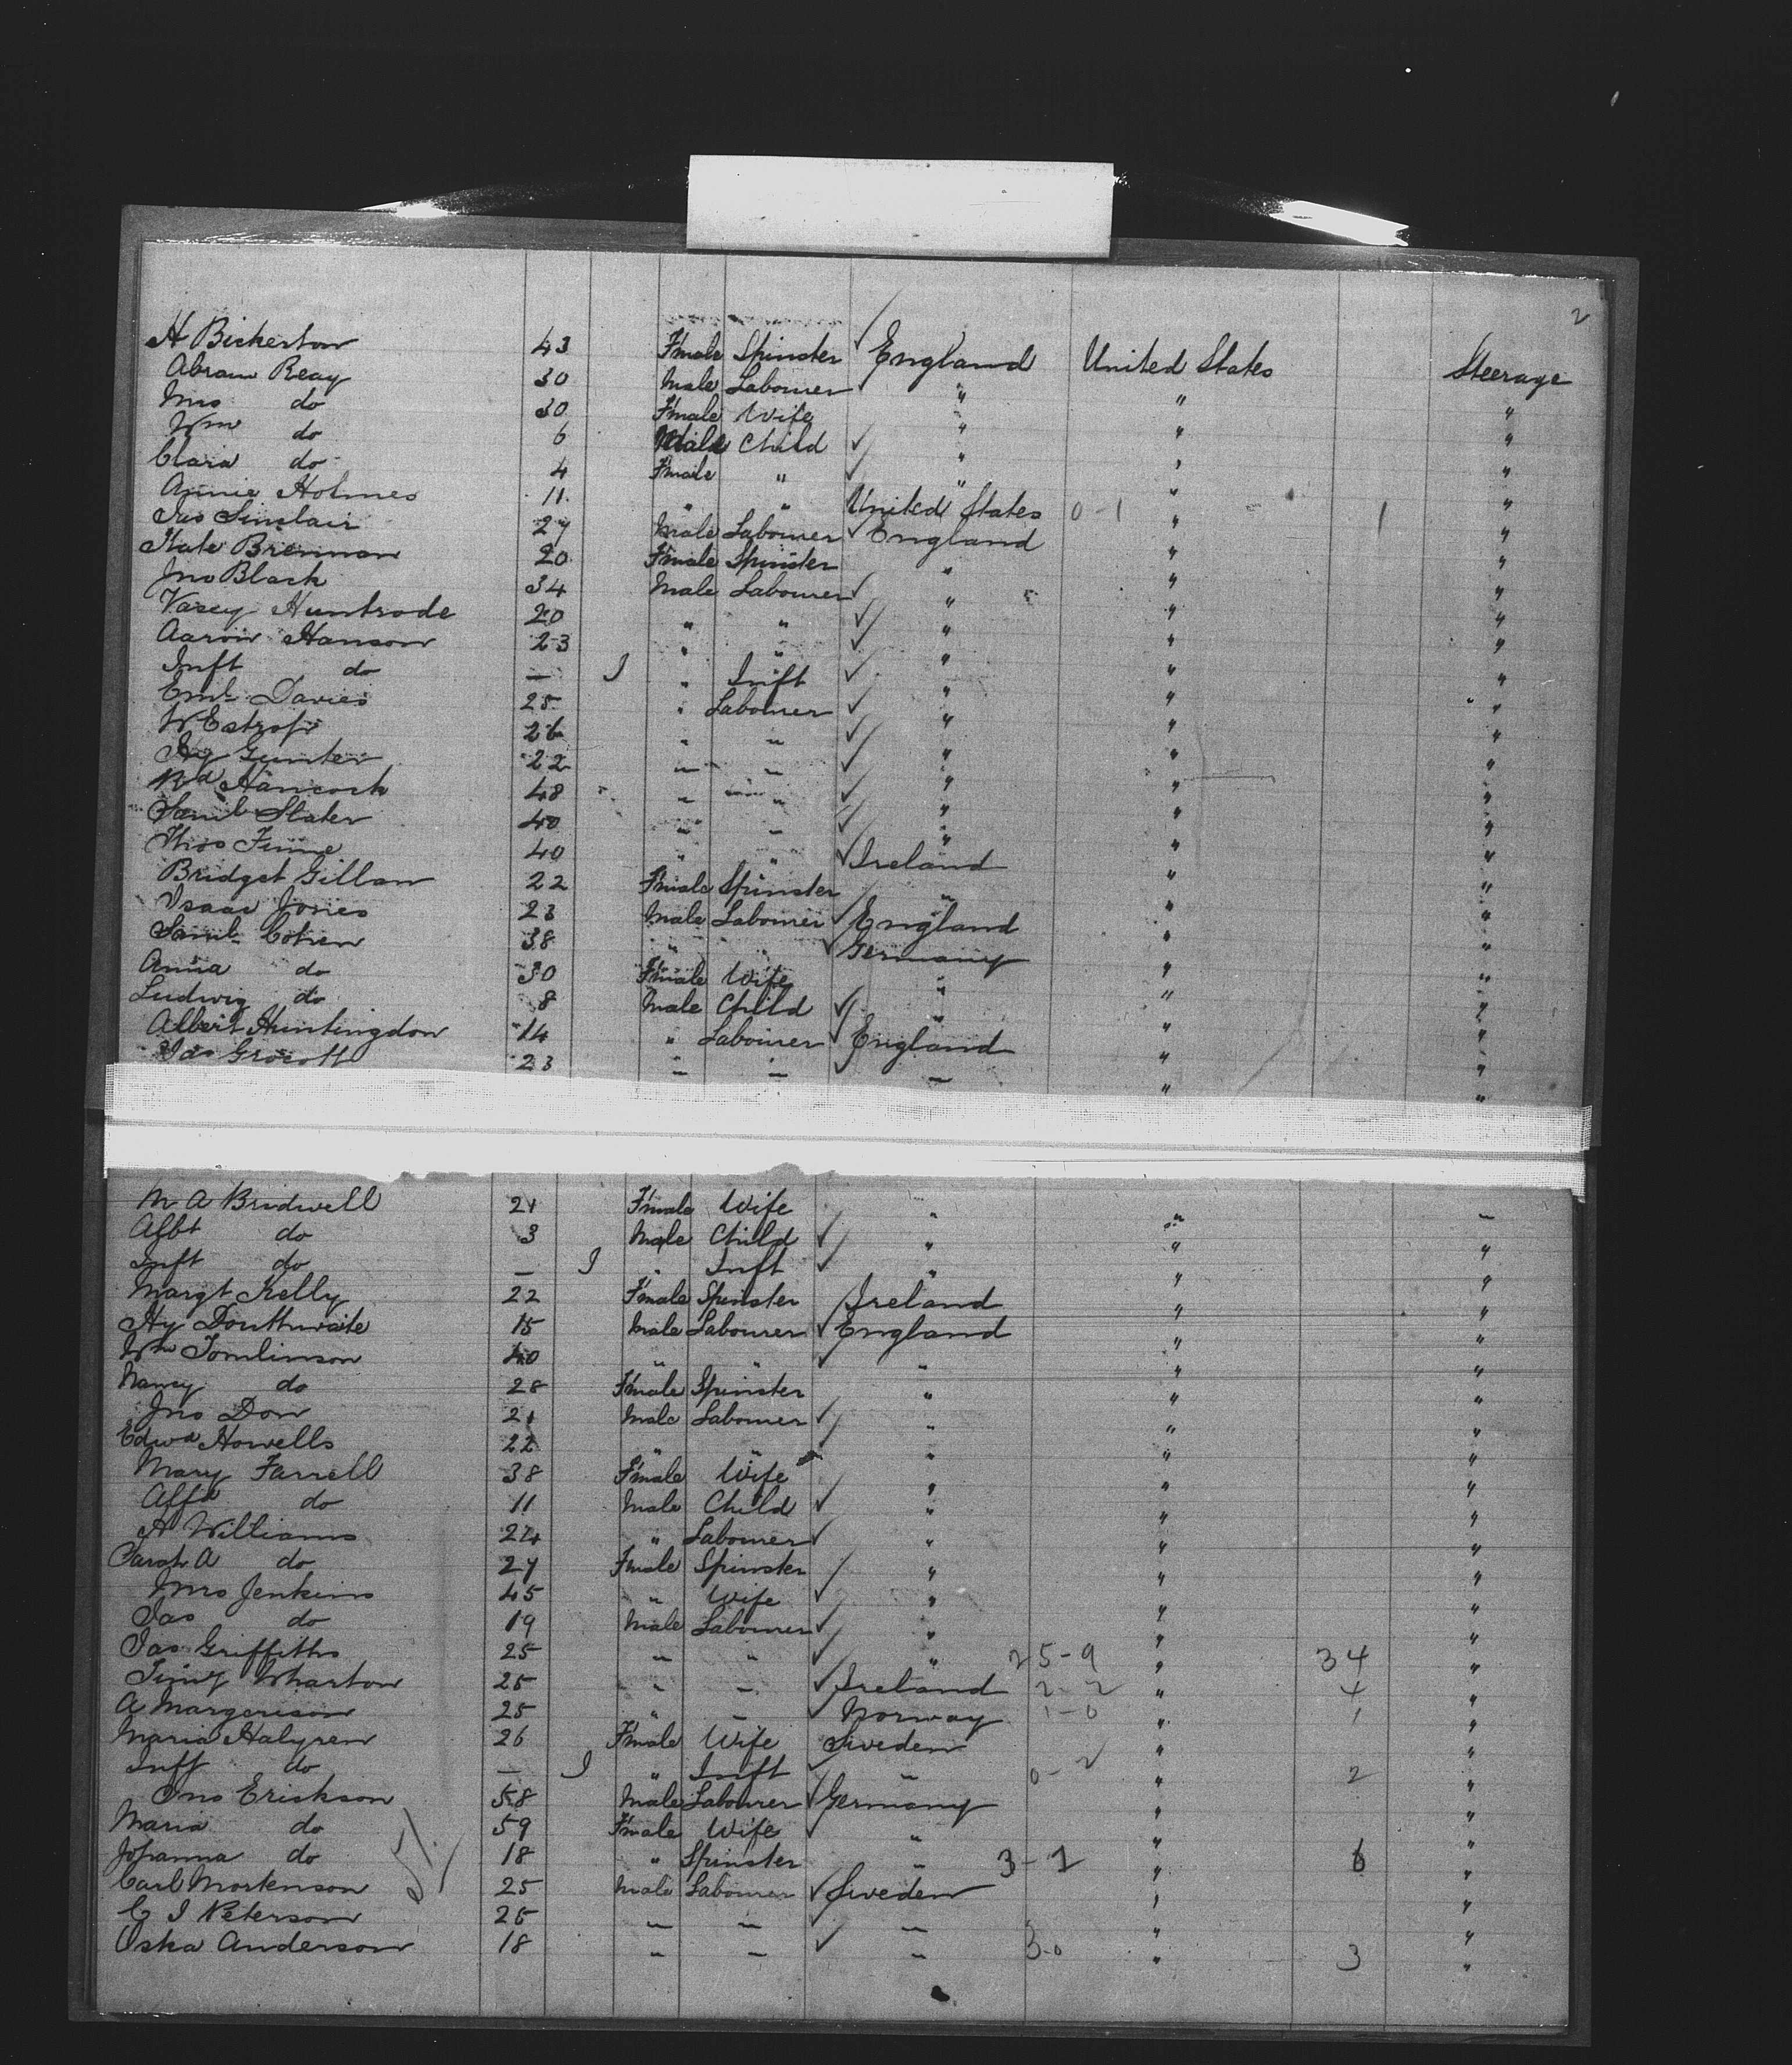 2
H Bickerton 43 Fmale Spinster England United States Steerage
Abram Reay 30 Male Labourer " " "
Mrs do 30 Fmale Wife " " "
Wm do 6 Male Child " " "
Clara do 4 Fmale " " " "
Annie Holmes 11 " " United States 0-1 " 1 "
Jas Sinclair 27 Male Labourer England " "
Kate Brennan 20 Fmale Spinster " " "
Jno Black 34 Male Labourer " " "
Vasey Huntrode 20 " " " " "
Aaron Hanson 23 " " " " "
Inft do — I " Inft " " "
Eml Davies 25 " Labourer " " "
W Estrop 26 " " " " "
Hy Gunter 22 " " " " "
Rd Hancock 48 " " " " "
Saml Slater 40 " " " " "
Thos Finne 40 " " Ireland " "
Bridget Gillan 22 Fmale Spinster " " "
Isaac Jones 23 Male Labourer England " "
Saml Cohen 38 " " Germany " "
Anna do 30 Fmale Wife " " "
Ludwig do 8 Male Child " " "
Albert Huntingdon 14 " Labourer England " "
Jas Grocott 23 " " " " "
M A Bridwell 21 Fmale Wife " " "
Albt do 3 Male Child " " "
Inft do — I " Inft " " "
Margt Kelly 22 Fmale Spinster Ireland " "
Hy Douthwaite 15 Male Labourer England " "
Wm Tomlinson 40 " " " " "
Nancy do 28 Fmale Spinster " " "
Jno Dow 21 Male Labourer " " "
Edwd Howells 22 " " " " "
Mary Farrell 38 Fmale Wife " " "
Alfd do 11 Male Child " " "
A Williams 24 " Labourer " " "
Sarah A do 27 Fmale Spinster " " "
Mrs Jenkins 45 " Wife " " "
Jas do 19 Male Labourer " " "
Jas Griffiths 25 " " " 25-9 " 34 "
Wharton 25 " " Ireland 2-2 " 4 "
A Margerison 25 " " Norway 1-0 " 1 "
Maria Halgren 26 Fmale Wife Sweden " "
Inft do — I " Inft " 0-2 " 2 "
Jno Erickson 58 Male Labourer Germany " "
Maria do 59 Fmale Wife " " "
Johanna do 18 " Spinster " 3-3 " 6 "
Carl Mortenson 25 Male Labourer Sweden " "
C I Peterson 25 " " " " "
Oska Anderson 18 " " " 3-0 " 3 "